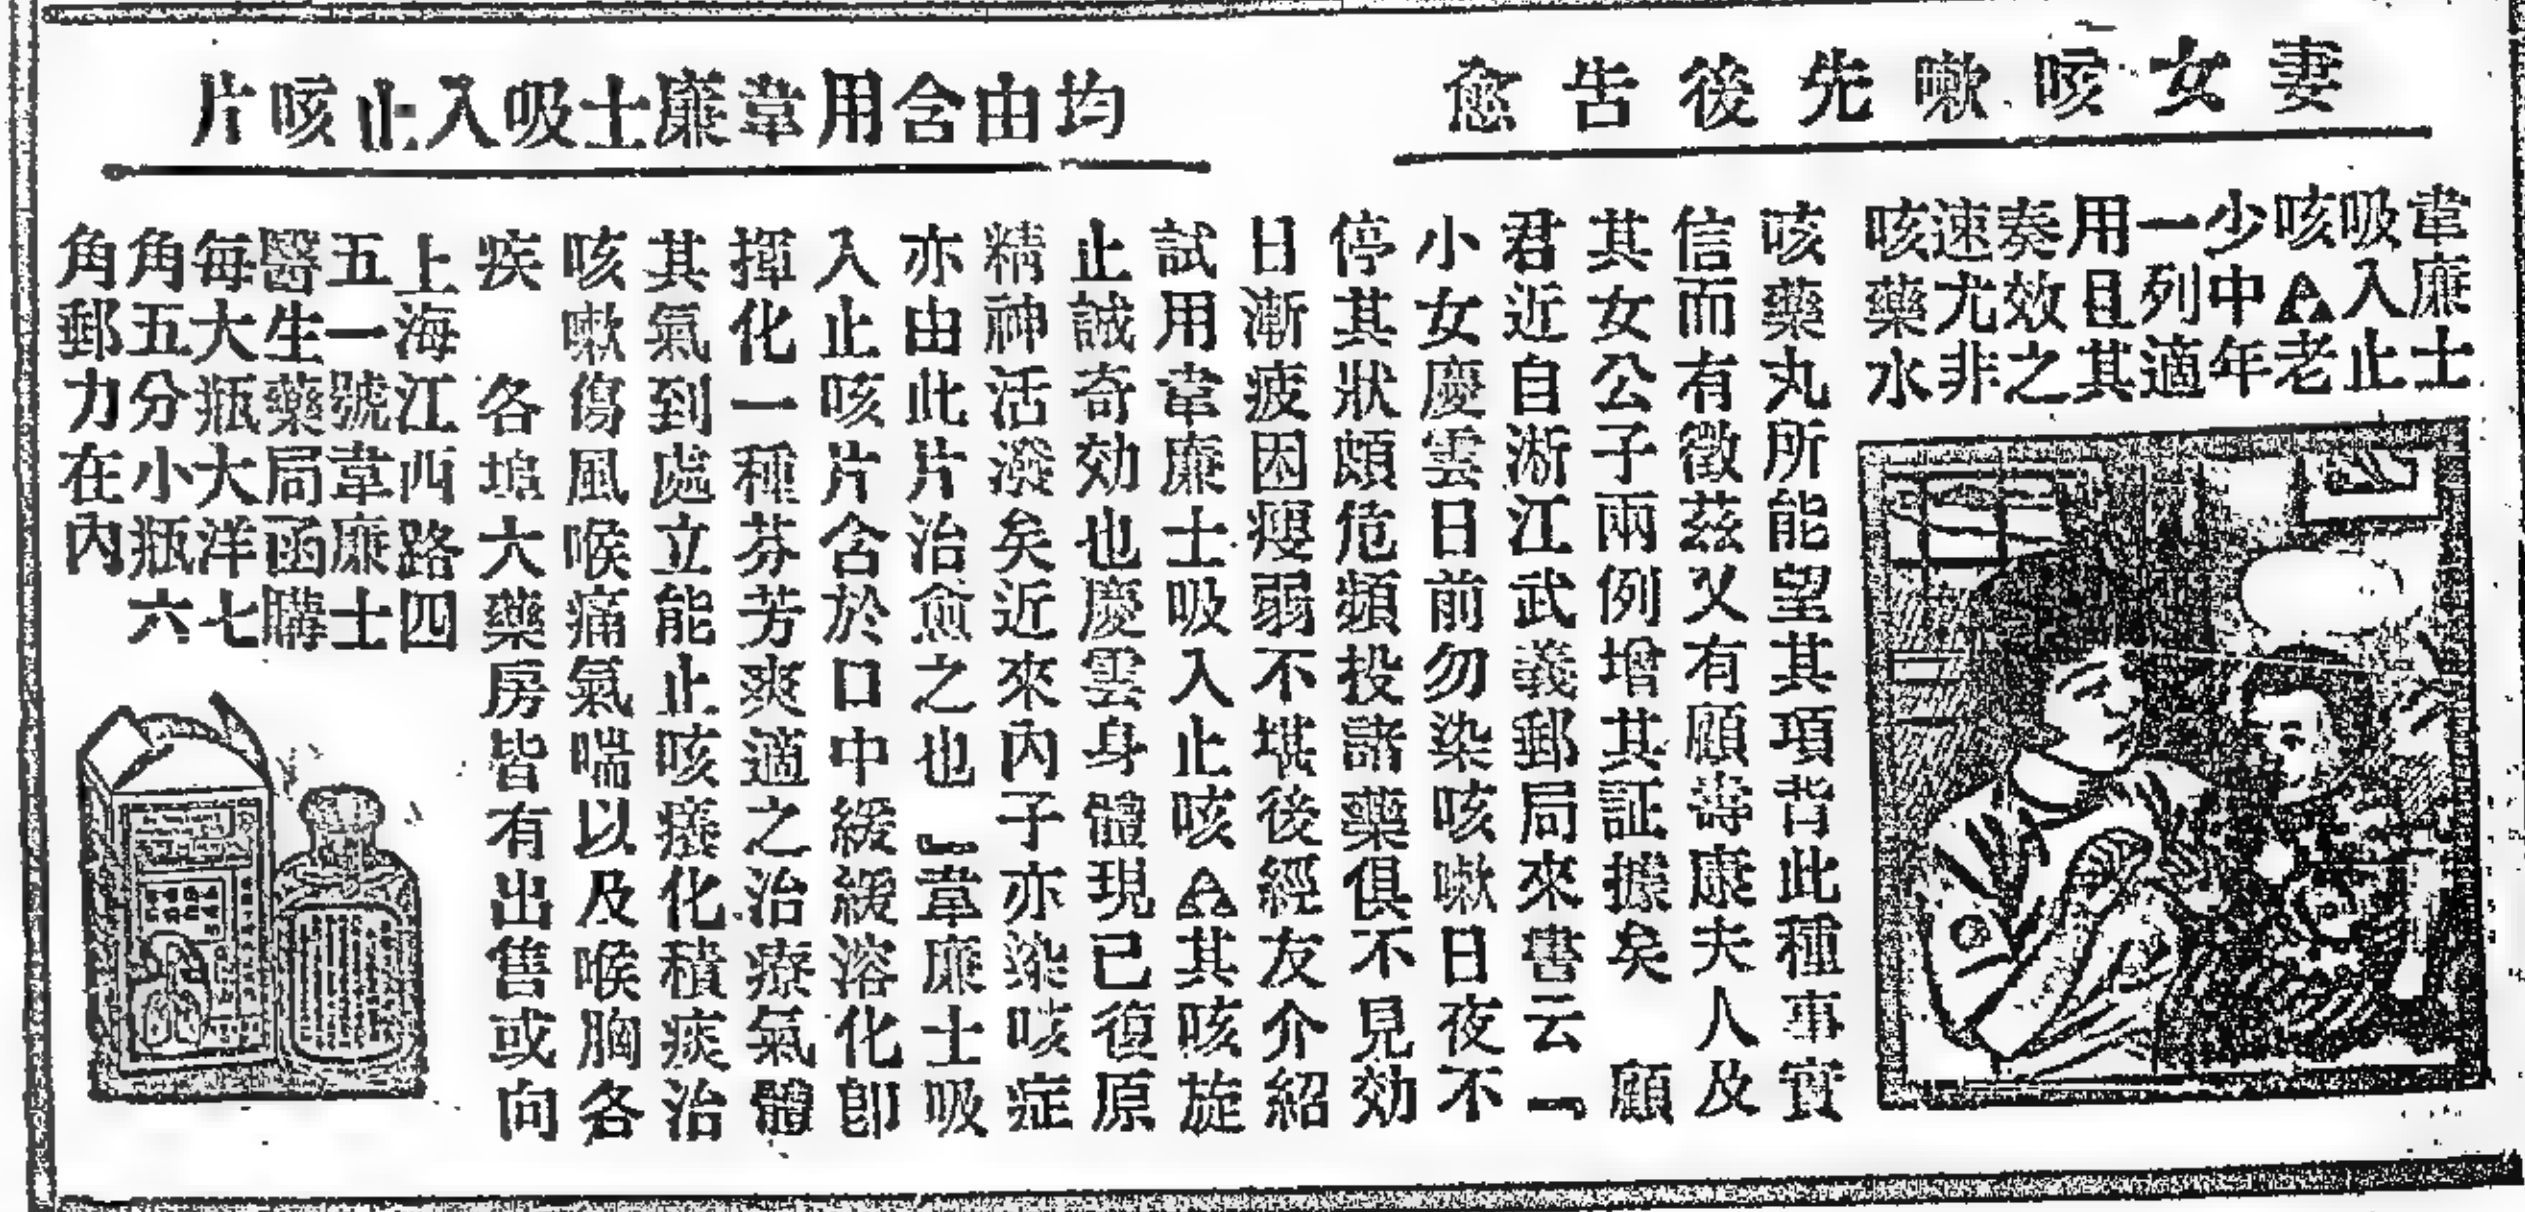 妻女咳嗽先後告愈
均由含用韋廉士吸入止咳片
韋廉士
吸入止
咳▲老
少中年
一列適
用且其
奏效之
速尤非
咳藥水
咳藥丸所能望其項背此種事實
信而有徵茲又有顧壽康夫人及
其女公子兩例增其証據矣 顧
君近自浙江武義郵局來書云「
小女慶雲日前勿染咳嗽日夜不
停其狀頗危頻投諸藥俱不見効
日漸疲困瘦弱不堪後經友介紹
試用韋廉士吸入止咳▲其咳旋
止誠奇効也慶雲身體現已復原
精神活潑矣近來內子亦染咳症
亦由此片治愈之也」韋廉士吸
入止咳片含於口中緩緩溶化卽
揮化一種芬芳爽適之治療氣體
其氣到處立能止咳癢化積痰治
咳嗽傷風喉痛氣喘以及喉胸各
疾 各埠大藥房皆有出售或向
上海江西路四
五一號韋廉士
醫生藥局函購
每大瓶大洋七
角五分小瓶六
角郵力在內